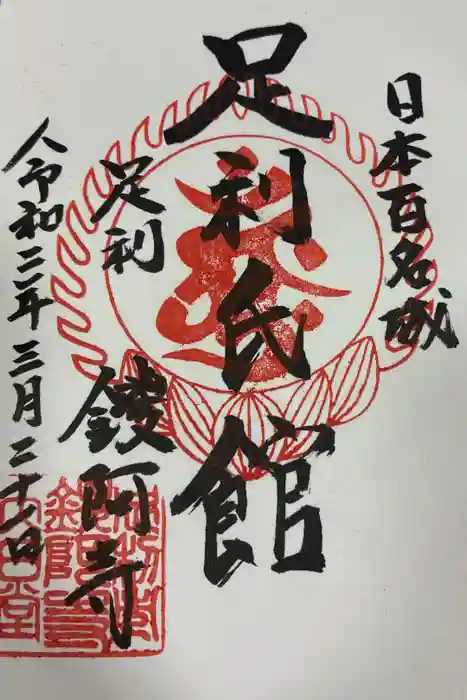 日本百名城
足利氏館
足利
鑁阿寺
令和三年三月二十七日